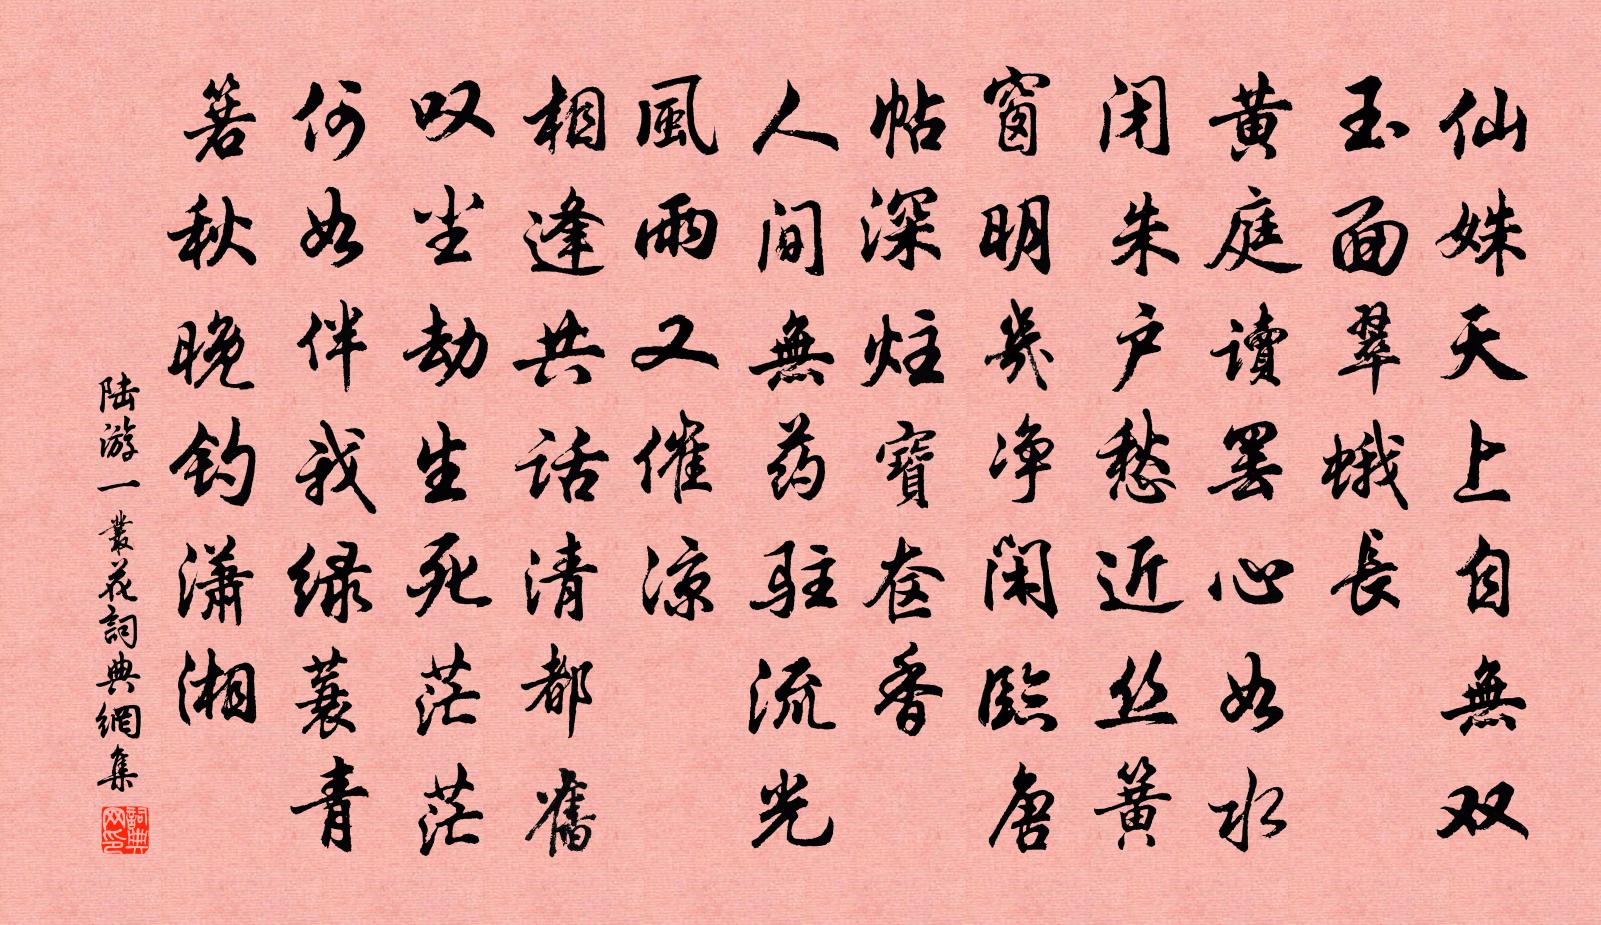 仙姝天上自無双
玉面翠蛾長
黄庭讀罢心如水
闭朱户愁近丝簧
窗明几净闲临唐
帖深炷寶奁香
人间無药驻流光
風雨又催凉
相逢共话清都舊
叹尘劫生死茫茫
何如伴我绿蓑青
箬秋晚钓潇湘
陆游一叢花詞典網集
詞典网印